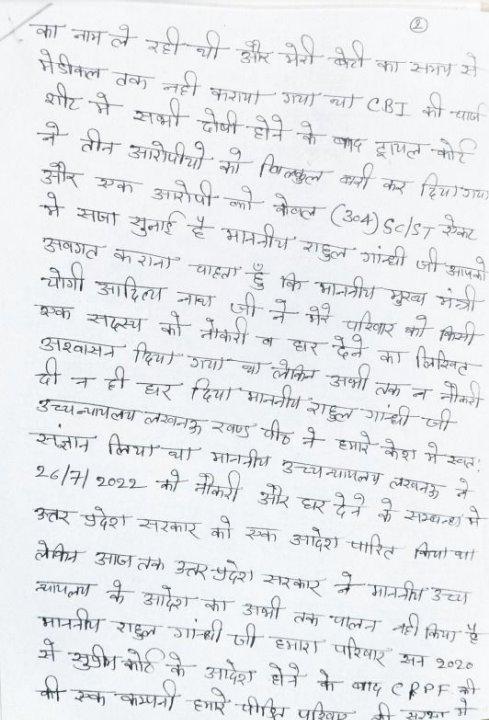 2
का नाम ले रही थी और मेरी बेटी का समय से
मेडीकल तक नही कराया गया था CBI की चार्ज
शीट मे सभी दोषी होने के बाद ट्रायल कोर्ट
ने तीन आरोपीयो को बिल्कुल बरी कर दिया गया
और एक आरोपी को केवल (304) SC/ST ऐक्ट
मे सजा सुनाई है माननीय राहुल गांधी जी आपको
अवगत कराना चाहता हूँ कि माननीय मुख्य मंत्री
योगी आदित्य नाथ जी ने मेरे परिवार को किसी
एक सदस्य को नौकरी व घर देने का लिखित
अश्वासन दिया गया था लेकिन अभी तक न नौकरी
दी न ही घर दिया माननीय राहुल गांधी जी
उच्चन्यायलय लखनऊ खण्ड पीठ ने हमारे केश मे स्वत:
संज्ञान लिया था माननीय उच्चन्यायलय लखनऊ ने
26/7/2022 को नौकरी और घर देने के सम्बन्ध मे
उत्तर प्रदेश सरकार को एक आदेश पारित किया था
लेकिन आज तक उत्तर प्रदेश सरकार ने माननीय उच्च
न्यायलय के आदेश का अभी तक पालन नही किया है
माननीय राहुल गांधी जी हमारा परिवार सन 2020
से सुप्रीम कोर्ट के आदेश होने के बाद CRPF की
की एक कम्पनी हमारे पीड़ित परिवार की सुरक्षा मे